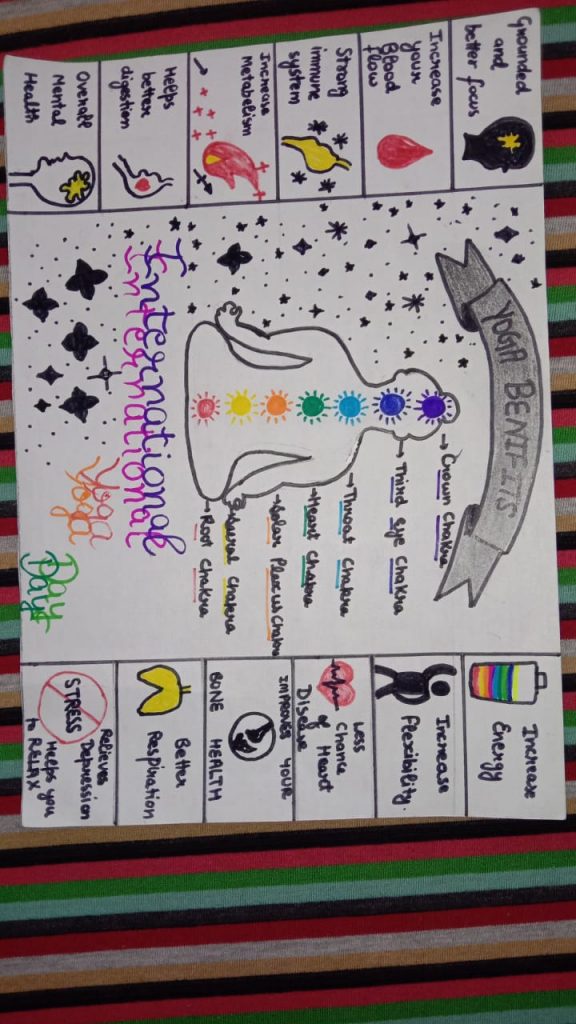 YOGA BENIFITS
Grounded
and
better focus
Increase
your
Blood
flow
Strong
immune
system
Increase
Metabelism
Helps
better
digestion
Overall
Mental
Health
Crown Chakra
Third Eye Chakra
Throat Chakra
Heart Chakra
Solar Plexus Chakra
Sacral Chakra
Root Chakra
International
Yoga
Day
Increase
Energy
Increase
Flexibility.
Less
Chance
of Heart
Disease
IMPROVES YOUR
BONE HEALTH
Better
Respiration
STRESS
Relieves
Depression
Helps you
to RELAX